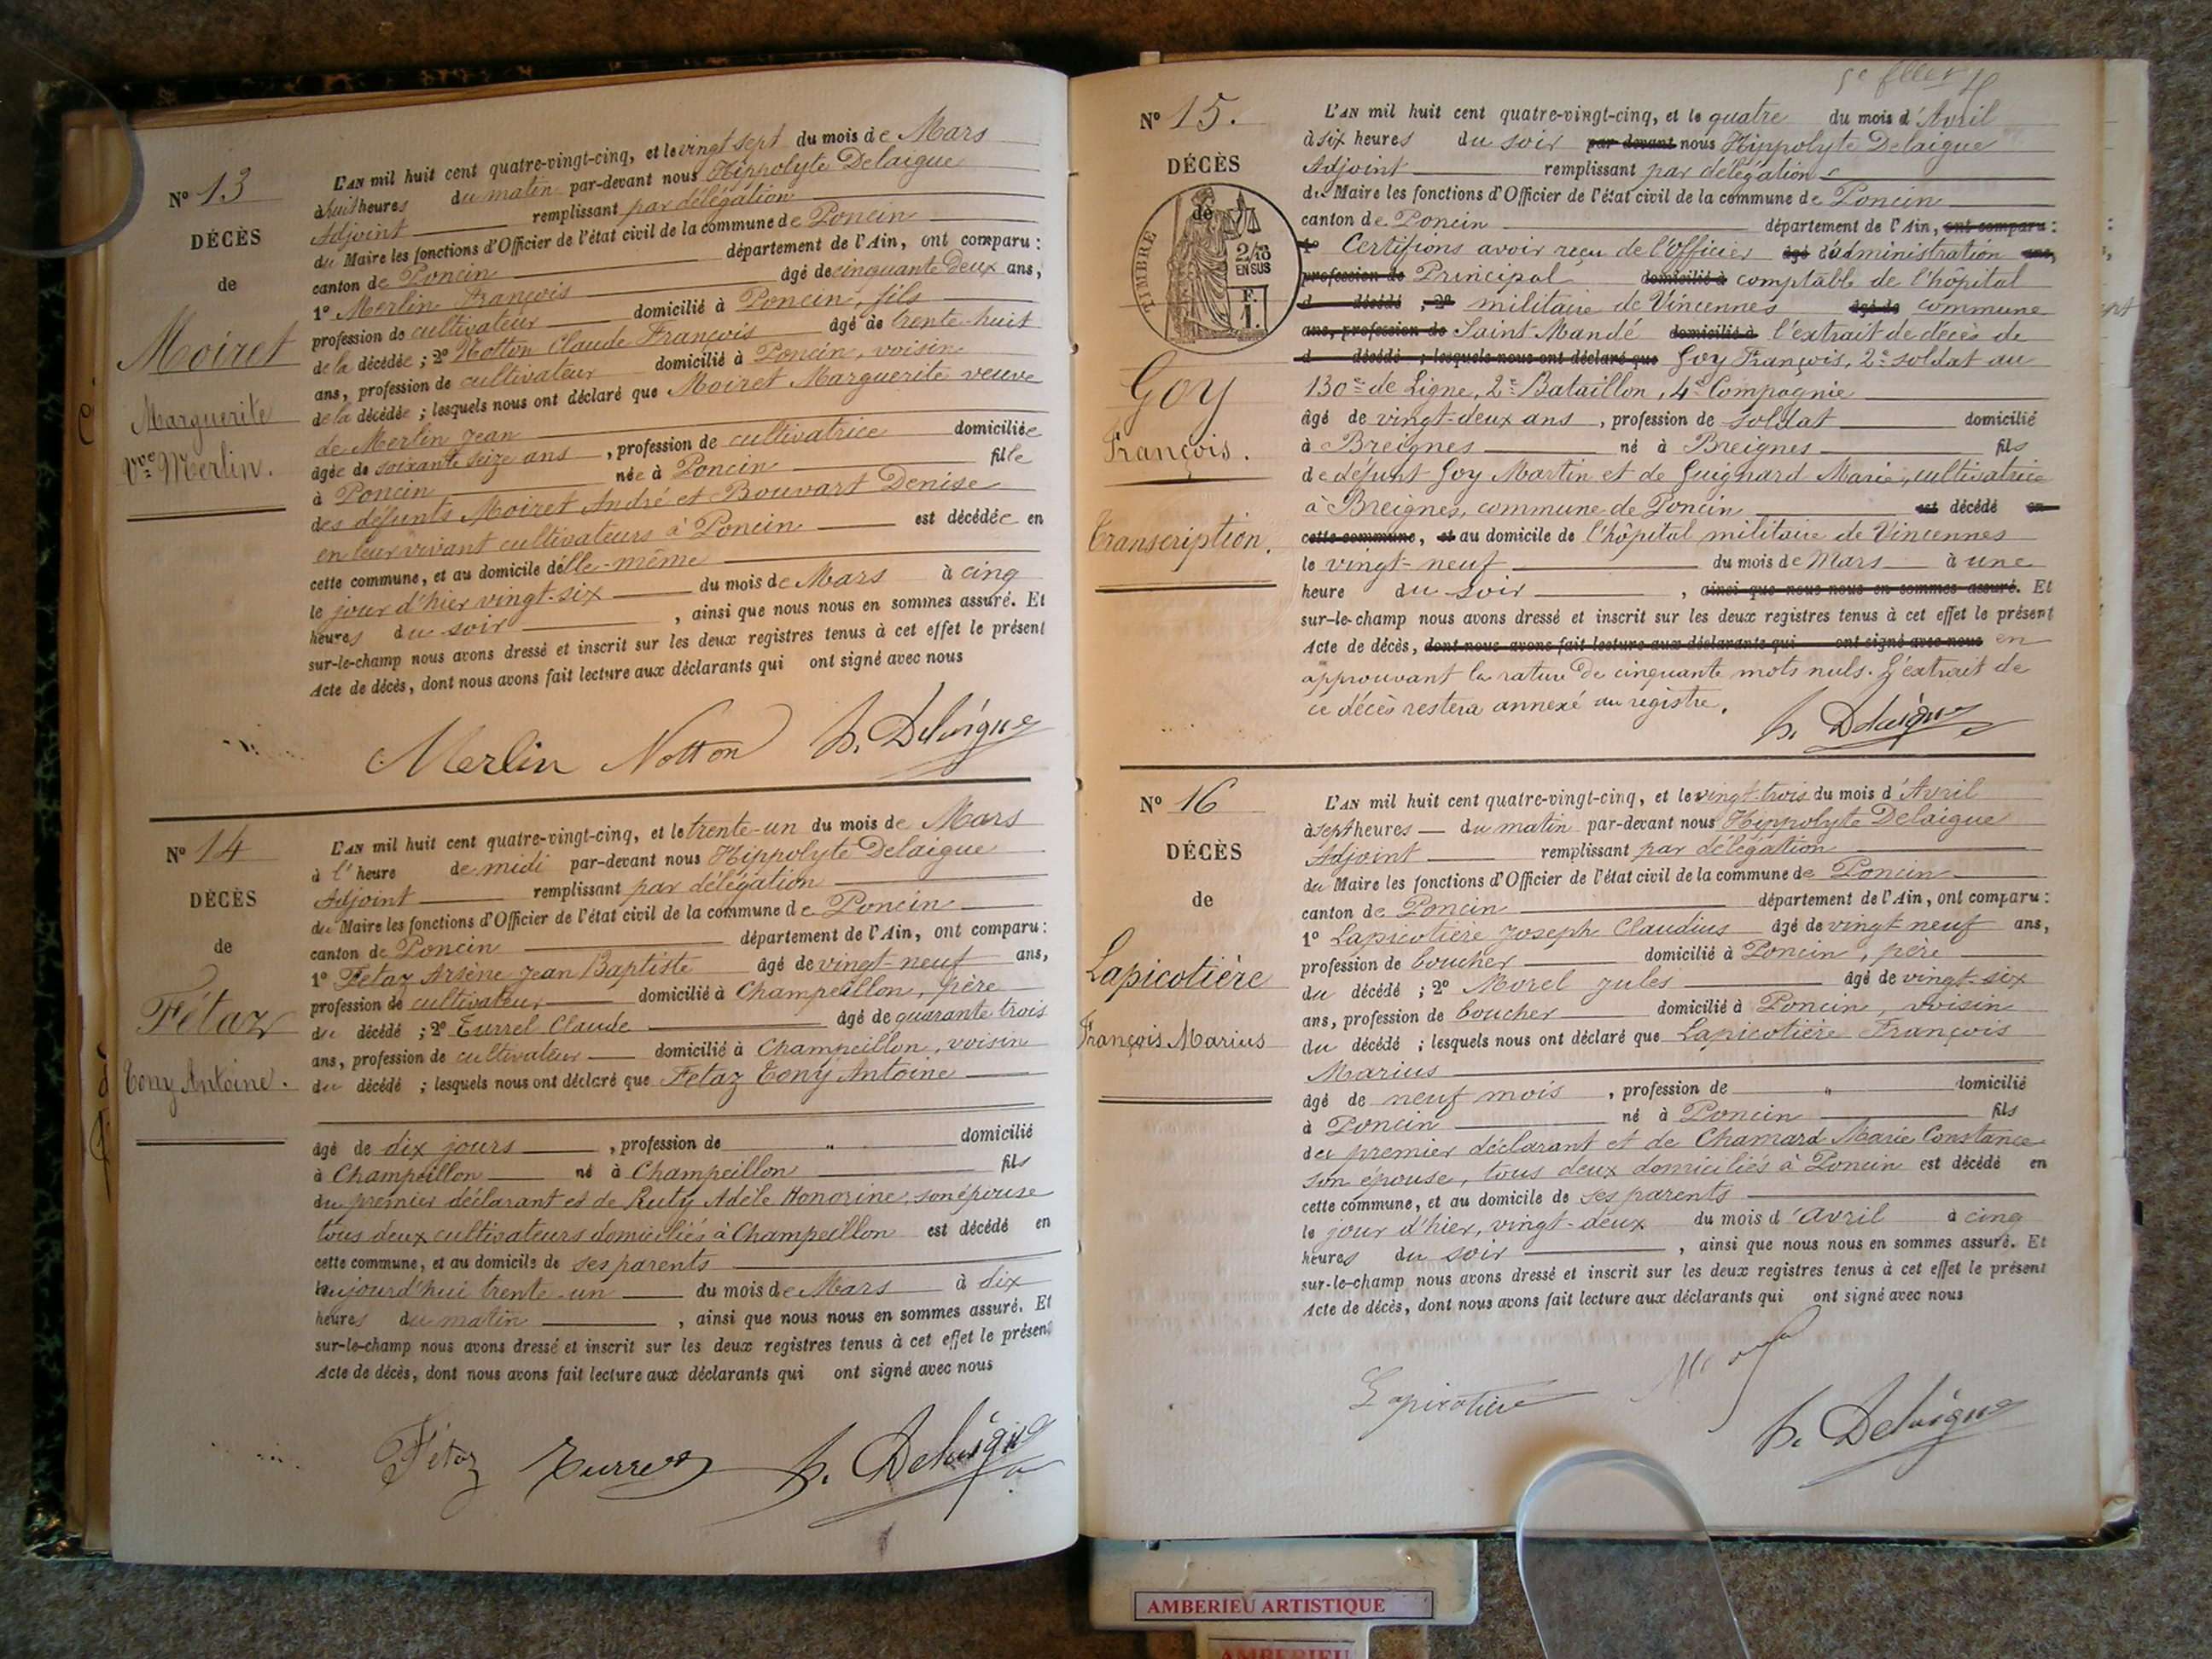 Nº 13
DÉCÈS
de
Moiret
Marguerite
Vve Merlin.
L'AN mil huit cent quatre-vingt-cinq, et le vingt sept du mois de Mars
à huit heures du matin par-devant nous Hippolyte Delaigue
Adjoint remplissant par délégation
du Maire les fonctions d'Officier de l'état civil de la commune de Poncin
canton de Poncin département de l'Ain, ont comparu :
1º Merlin François âgé de cinquante Deux ans,
profession de cultivateur domicilié à Poncin, fils
de la décédée ; 2º Notton Claude François âgé de trente-huit
ans, profession de cultivateur domicilié à Poncin, voisin
de la décédée ; lesquels nous ont déclaré que Moiret Marguerite veuve
de Merlin Jean
âgée de soixante seize ans , profession de cultivatrice domiciliée
à Poncin née à Poncin fille
des défunts Moiret André et Bouvart Denise
en leur vivant cultivateurs à Poncin est décédée en
cette commune, et au domicile d'elle-même
le jour d'hier vingt-six du mois de Mars à cinq
heures du soir , ainsi que nous nous en sommes assuré. Et
sur-le-champ nous avons dressé et inscrit sur les deux registres tenus à cet effet le présent
Acte de décès, dont nous avons fait lecture aux déclarants qui ont signé avec nous
Merlin Notton h. Delaigue
Nº 14
DÉCÈS
de
Fétaz
Tony Antoine.
L'AN mil huit cent quatre-vingt-cinq, et le trente-un du mois de Mars
à l'heure de midi par-devant nous Hippolyte Delaigue
Adjoint remplissant par délégation
du Maire les fonctions d'Officier de l'état civil de la commune de Poncin
canton de Poncin département de l'Ain, ont comparu :
1º Fetaz Arsène Jean Baptiste âgé de vingt-neuf ans,
profession de cultivateur domicilié à Champeillon, père
du décédé ; 2º Turrel Claude âgé de quarante trois
ans, profession de cultivateur domicilié à Champeillon, voisin
du décédé ; lesquels nous ont déclaré que Fetaz Tony Antoine
âgé de dix jours , profession de " domicilié
à Champeillon né à Champeillon fils
du premier déclarant et de Ruty Adèle Honorine, son épouse
tous deux cultivateurs domiciliés à Champeillon est décédé en
cette commune, et au domicile de ses parents
aujourd'hui trente-un du mois de Mars à dix
heures du matin , ainsi que nous nous en sommes assuré. Et
sur-le-champ nous avons dressé et inscrit sur les deux registres tenus à cet effet le présent
Acte de décès, dont nous avons fait lecture aux déclarants qui ont signé avec nous
Fétaz Turrel h. Delaigue
Nº 15.
DÉCÈS
de
TIMBRE
2/10
EN SUS
F.
1.
Goy
François.
Transcription.
L'AN mil huit cent quatre-vingt-cinq, et le quatre du mois d'Avril
à six heures du soir par-devant nous Hippolyte Delaigue
Adjoint remplissant par délégation
du Maire les fonctions d'Officier de l'état civil de la commune de Poncin
canton de Poncin département de l'Ain, ont comparu :
1º Certifions avoir reçu de l'Officier âgé d'administration ans,
profession de Principal domicilié à comptable de l'hôpital
d décédé ; 2º militaire de Vincennes âgé de commune
ans, profession de Saint Mandé domicilié à l'extrait de décès de
d décédé ; lesquels nous ont déclaré que Goy François, 2e soldat au
130e de Ligne, 2e Bataillon, 4e Compagnie
âgé de vingt-deux ans , profession de soldat domicilié
à Breignes né à Breignes fils
de défunt Goy Martin et de Guignard Marie, cultivatrice
à Breignes, commune de Poncin est décédé en
cette commune, et au domicile de l'hôpital militaire de Vincennes
le vingt-neuf du mois de Mars à une
heure du soir , ainsi que nous nous en sommes assuré. Et
sur-le-champ nous avons dressé et inscrit sur les deux registres tenus à cet effet le présent
Acte de décès, dont nous avons fait lecture aux déclarants qui ont signé avec nous en
approuvant la rature de cinquante mots nuls. L'extrait de
ce décès restera annexé au registre.
h. Delaigue
Nº 16
DÉCÈS
de
Lapicotière
François Marius
L'AN mil huit cent quatre-vingt-cinq, et le vingt-trois du mois d'Avril
à sept heures du matin par-devant nous Hippolyte Delaigue
Adjoint remplissant par délégation
du Maire les fonctions d'Officier de l'état civil de la commune de Poncin
canton de Poncin département de l'Ain, ont comparu :
1º Lapicotière Joseph Claudius âgé de vingt neuf ans,
profession de boucher domicilié à Poncin, père
du décédé ; 2º Morel Jules âgé de vingt-six
ans, profession de boucher domicilié à Poncin, voisin
du décédé ; lesquels nous ont déclaré que Lapicotière François
Marius
âgé de neuf mois , profession de " domicilié
à Poncin né à Poncin fils
du premier déclarant et de Chamard Marie Constance
son épouse, tous deux domiciliés à Poncin est décédé en
cette commune, et au domicile de ses parents
le jour d'hier, vingt-deux du mois d'Avril à cinq
heures du soir , ainsi que nous nous en sommes assuré. Et
sur-le-champ nous avons dressé et inscrit sur les deux registres tenus à cet effet le présent
Acte de décès, dont nous avons fait lecture aux déclarants qui ont signé avec nous
Lapicotière
h. Delaigue
AMBERIEU ARTISTIQUE
AMBERIEU